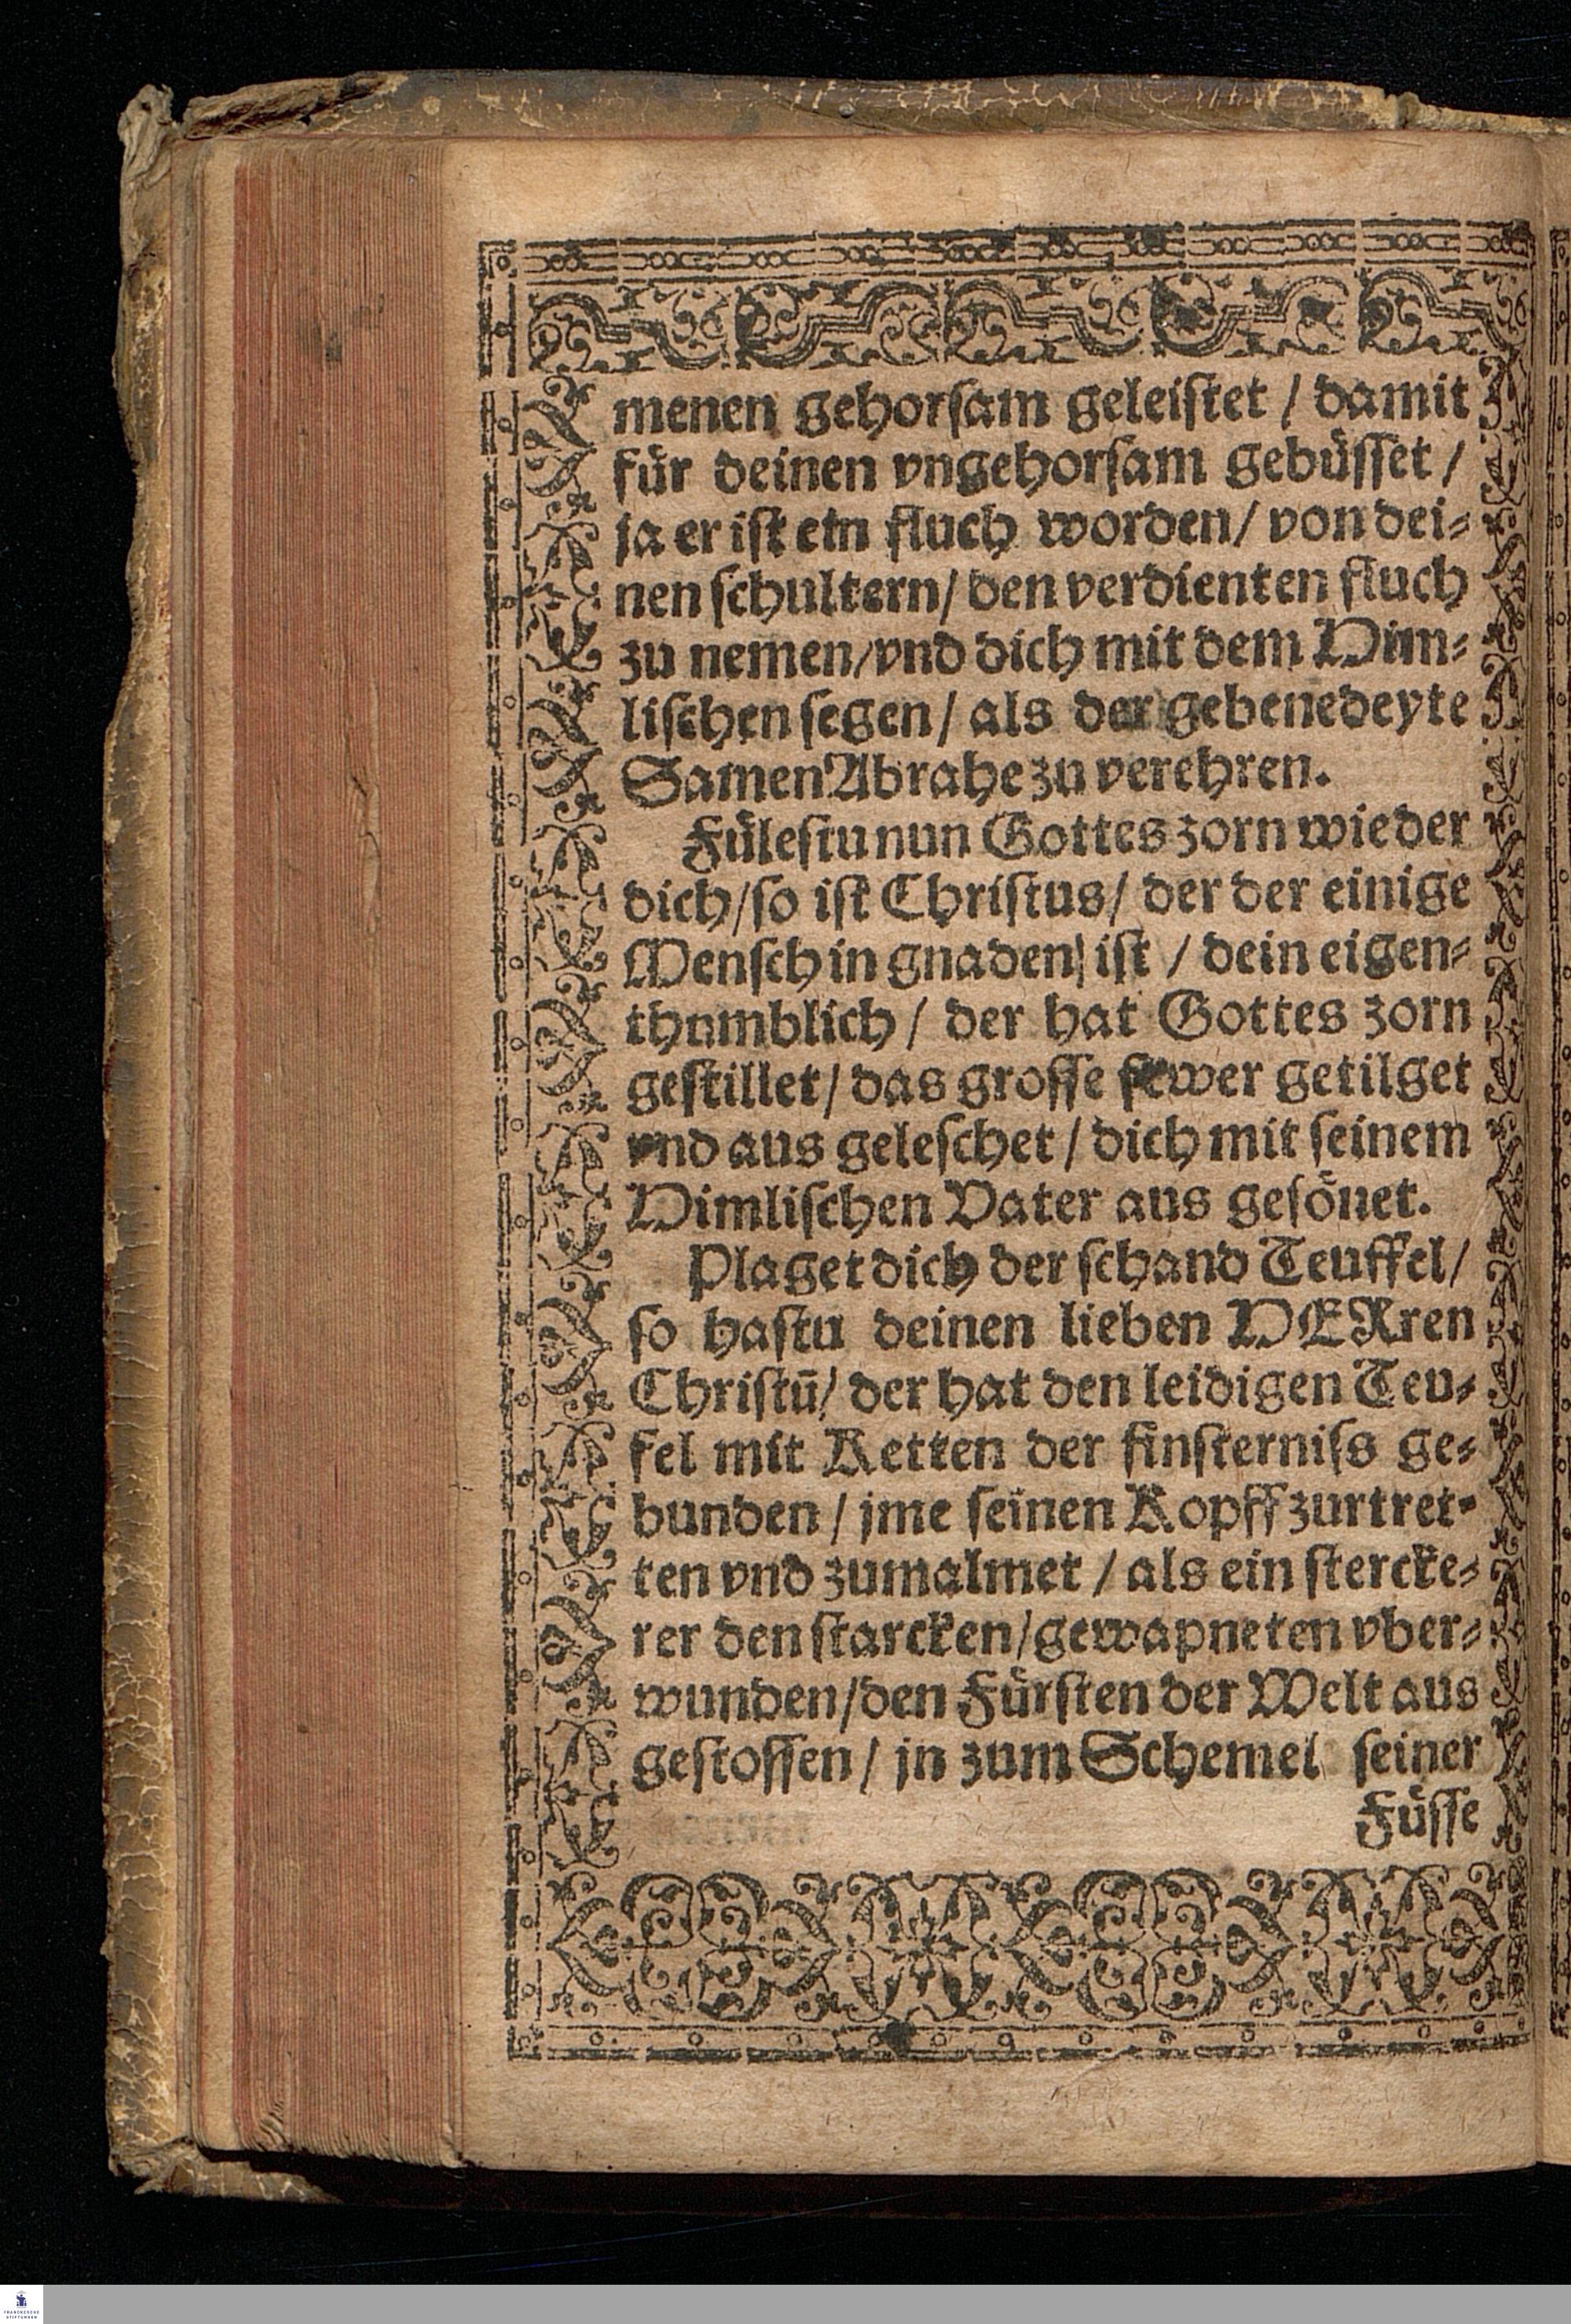 menen gehorsam geleistet / damit
für deinen vngehorsam gebüsset /
ja er ist ein fluch worden / von dei-
nen schultern / den verdienten fluch
zu nemen / vnd dich mit dem Him-
lischen segen / als der gebenedeyte
Samen Abrahe zu verehren.
Fülestu nun Gottes zorn wieder
dich / so ist Christus / der der einige
Mensch in gnaden ist / dein eigen-
thumblich / der hat Gottes zorn
gestillet / das grosse fewer getilget
vnd aus geleschet / dich mit seinem
Himlischen Vater aus gesönet.
Plaget dich der schand Teuffel /
so hastu deinen lieben HERren
Christū / der hat den leidigen Teu-
fel mit Ketten der finsterniss ge-
bunden / jme seinen Kopff zurtret-
ten vnd zumalmet / als ein stercke-
rer den starcken / gewapneten vber-
wunden / den Fürsten der Welt aus
gestossen / jn zum Schemel seiner
Füsse
FRANCKESCHE
STIFTUNGEN